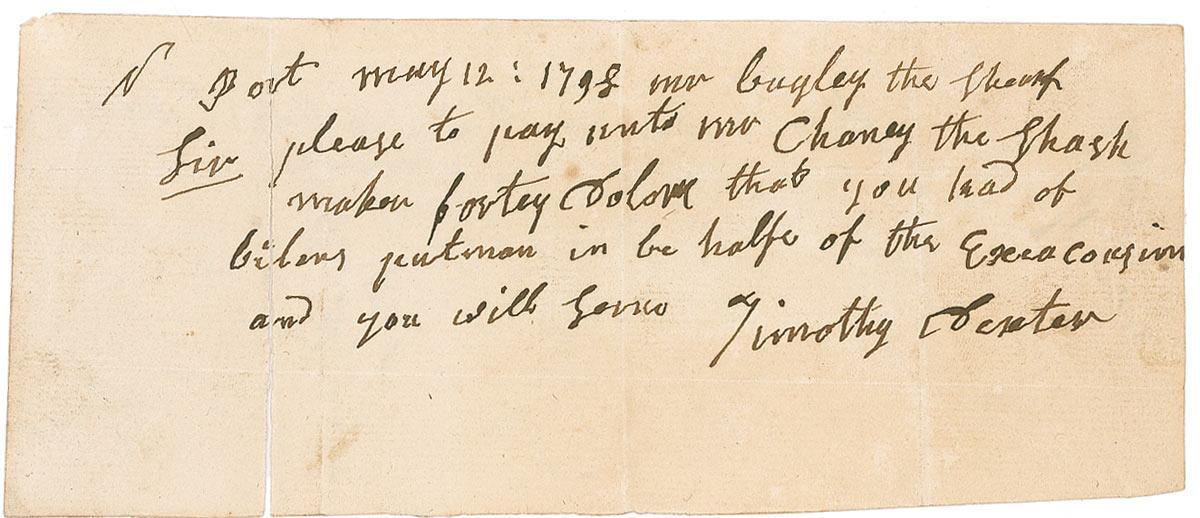 N Port may 12 : 1798 mr bagley the Shearf
Sir please to pay unto mr Chaney the Shash
maker fortey Dolors that you had of
bilens putman in be halfe of the Exeaconsion
and you will Serve Timothy Dexter